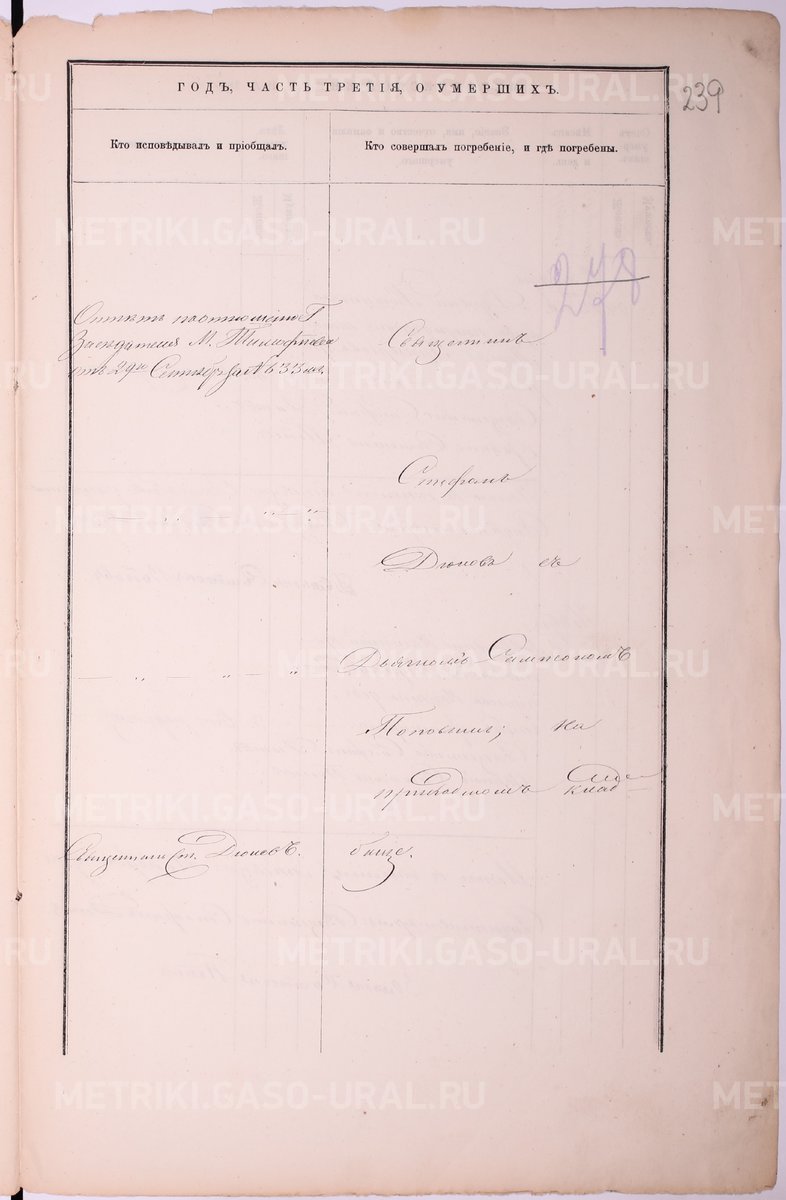 ГОДЪ, ЧАСТЬ ТРЕТІЯ, О УМЕРШИХЪ.
239
Кто исповѣдывалъ и пріобщалъ.
Кто совершалъ погребеніе, и гдѣ погребены.
278
Отпѣтъ по отношенію Г.
Засѣдателя М.
отъ 29го Сентября № 635
Священникъ
Стефанъ
Дюковъ съ
Дьячкомъ Сампсономъ
Поповымъ, на
приходскомъ клад
Священникъ Ст. Дюковъ.
бище.
METRIKI.GASO-URAL.RU